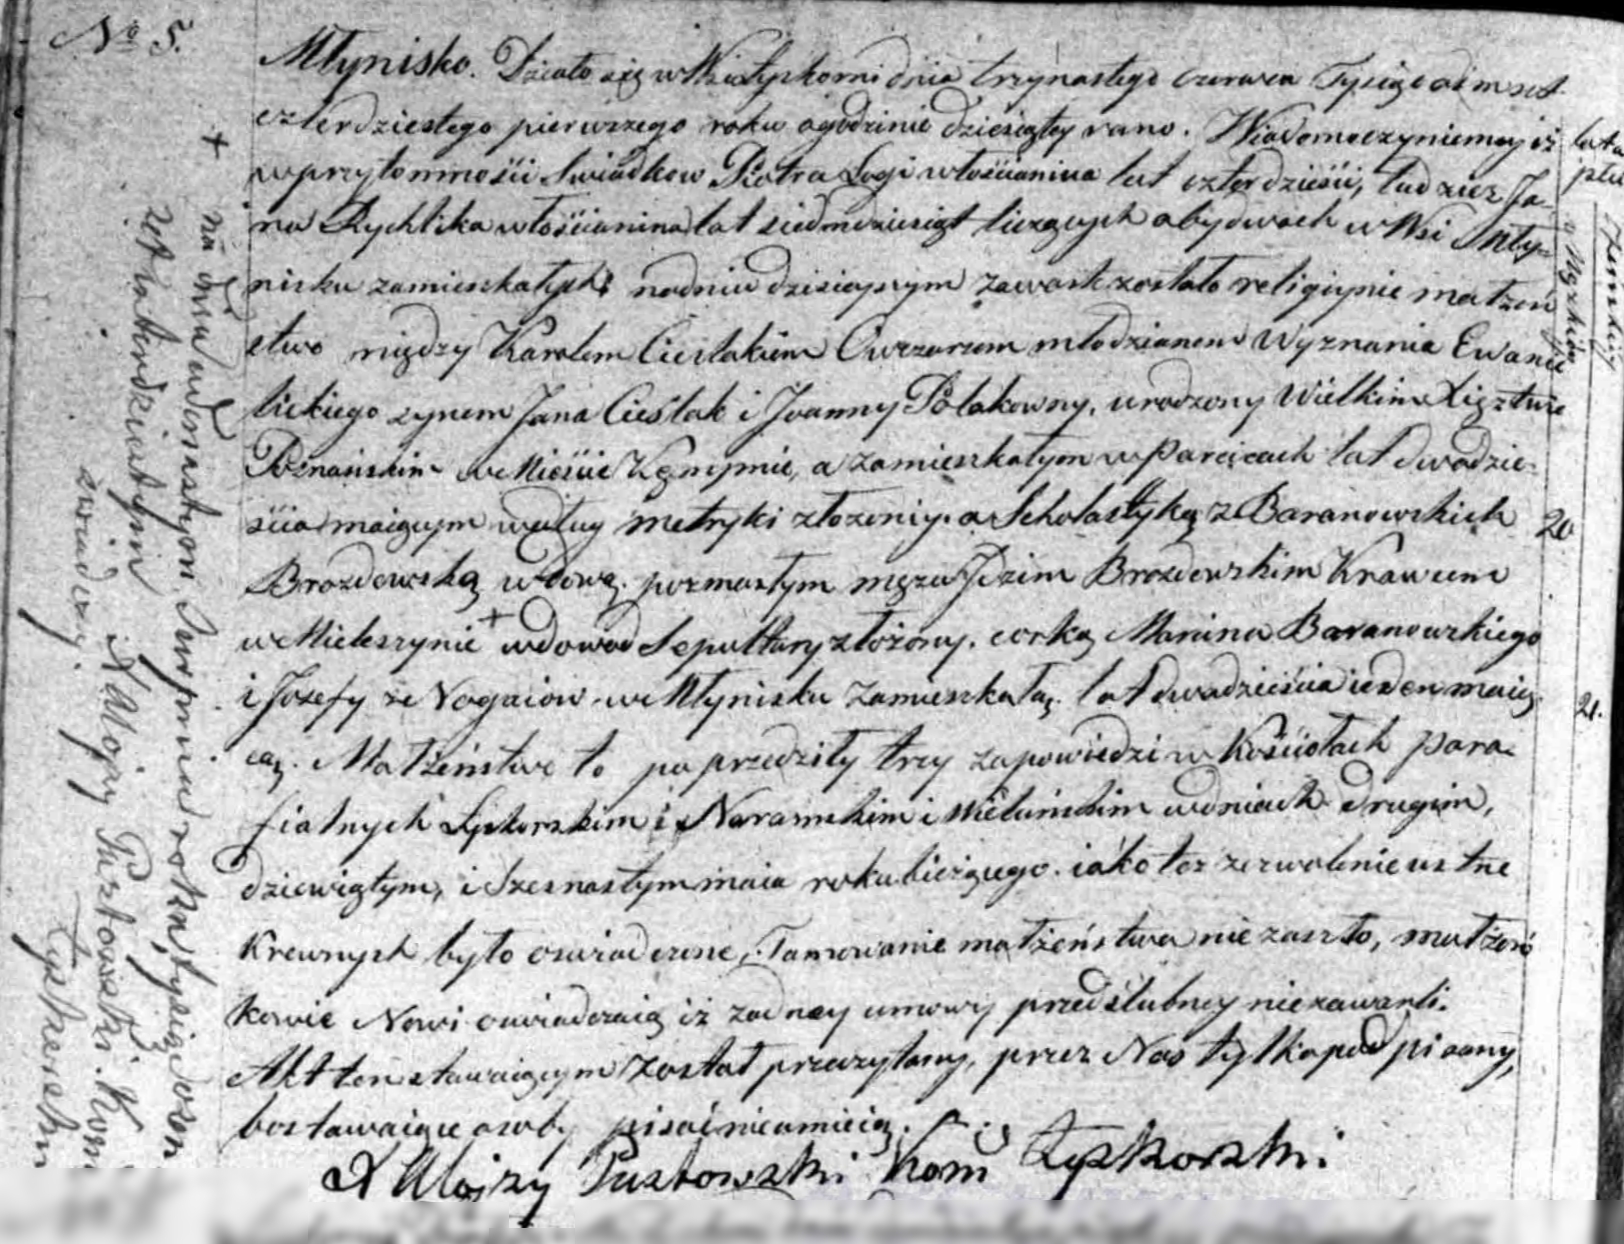 No 5.
Młynisko. Działo się w Wsi Łyskorni dnia trzynastego czerwca Tysiąc ośmset
czterdziestego pierwszego roku o godzinie dziesiątey rano. Wiadomo czyniemy iż
w przytomności Swiadkow Piotra Łogi włościanina lat czterdzieści, tudziez Ja-
na Rychlika włościanina lat siedmdziesiąt liczących obydwoch w Wsi Młyy-
nisku zamieszkałych na dniu dzisiayszym zawarte zostało religiynie małżeń
stwo między Karolem Cieslakiem Owczarzem młodzianem Wyznania Ewanie
lickiego synem Jana Cieślak i Joanny Polakowny, urodzony Wielkim Xięztwie
Poznańskim we Mieście Kępnie, a zamieszkałym w Parcicach lat dwadzie-
ścia maiącym według metryki złozoniy. a Scholastyką z Baranowskich
Brozdowską wdową po zmarłym mężu Jozim Brozdowskim Krawcem
w Mieleszynie + w dowod Sepultury złożony. corką Marcina Baranowskiego
i Jozefy ze Nogaiow we Młynisku zamieszkałą lat dwadzieścia ieden maią
cą. Małżeństwo to poprzedziły trzy zapowiedzi w Kościołach para
fialnych Łyskorskim i Naramskim i Wieluńskim w dniach drugim,
dziewiątym, i Szesnastym maia roku bieżącego. iako też zezwolenie ustne
Krewnych było oswiadczone, Tamowanie małżeństwa nie zaszło, małżoń
kowie Nowi oswiadczaią iż zadney umowy przedślubney nie zawarli.
Akt ten stawaiącym został przeczytany, przez Nas tylko podpisany,
bo stawaiące osoby pisać nieumieią.
X Aloizy Pustowski Kom Łyskorski.
+ na dniu wdwunastym Sierpnia roku tysiąc ośm
set trzydziestym
zwiadczy.
X Alojzy Pustowski. Kom
Łyskorski
20
21.